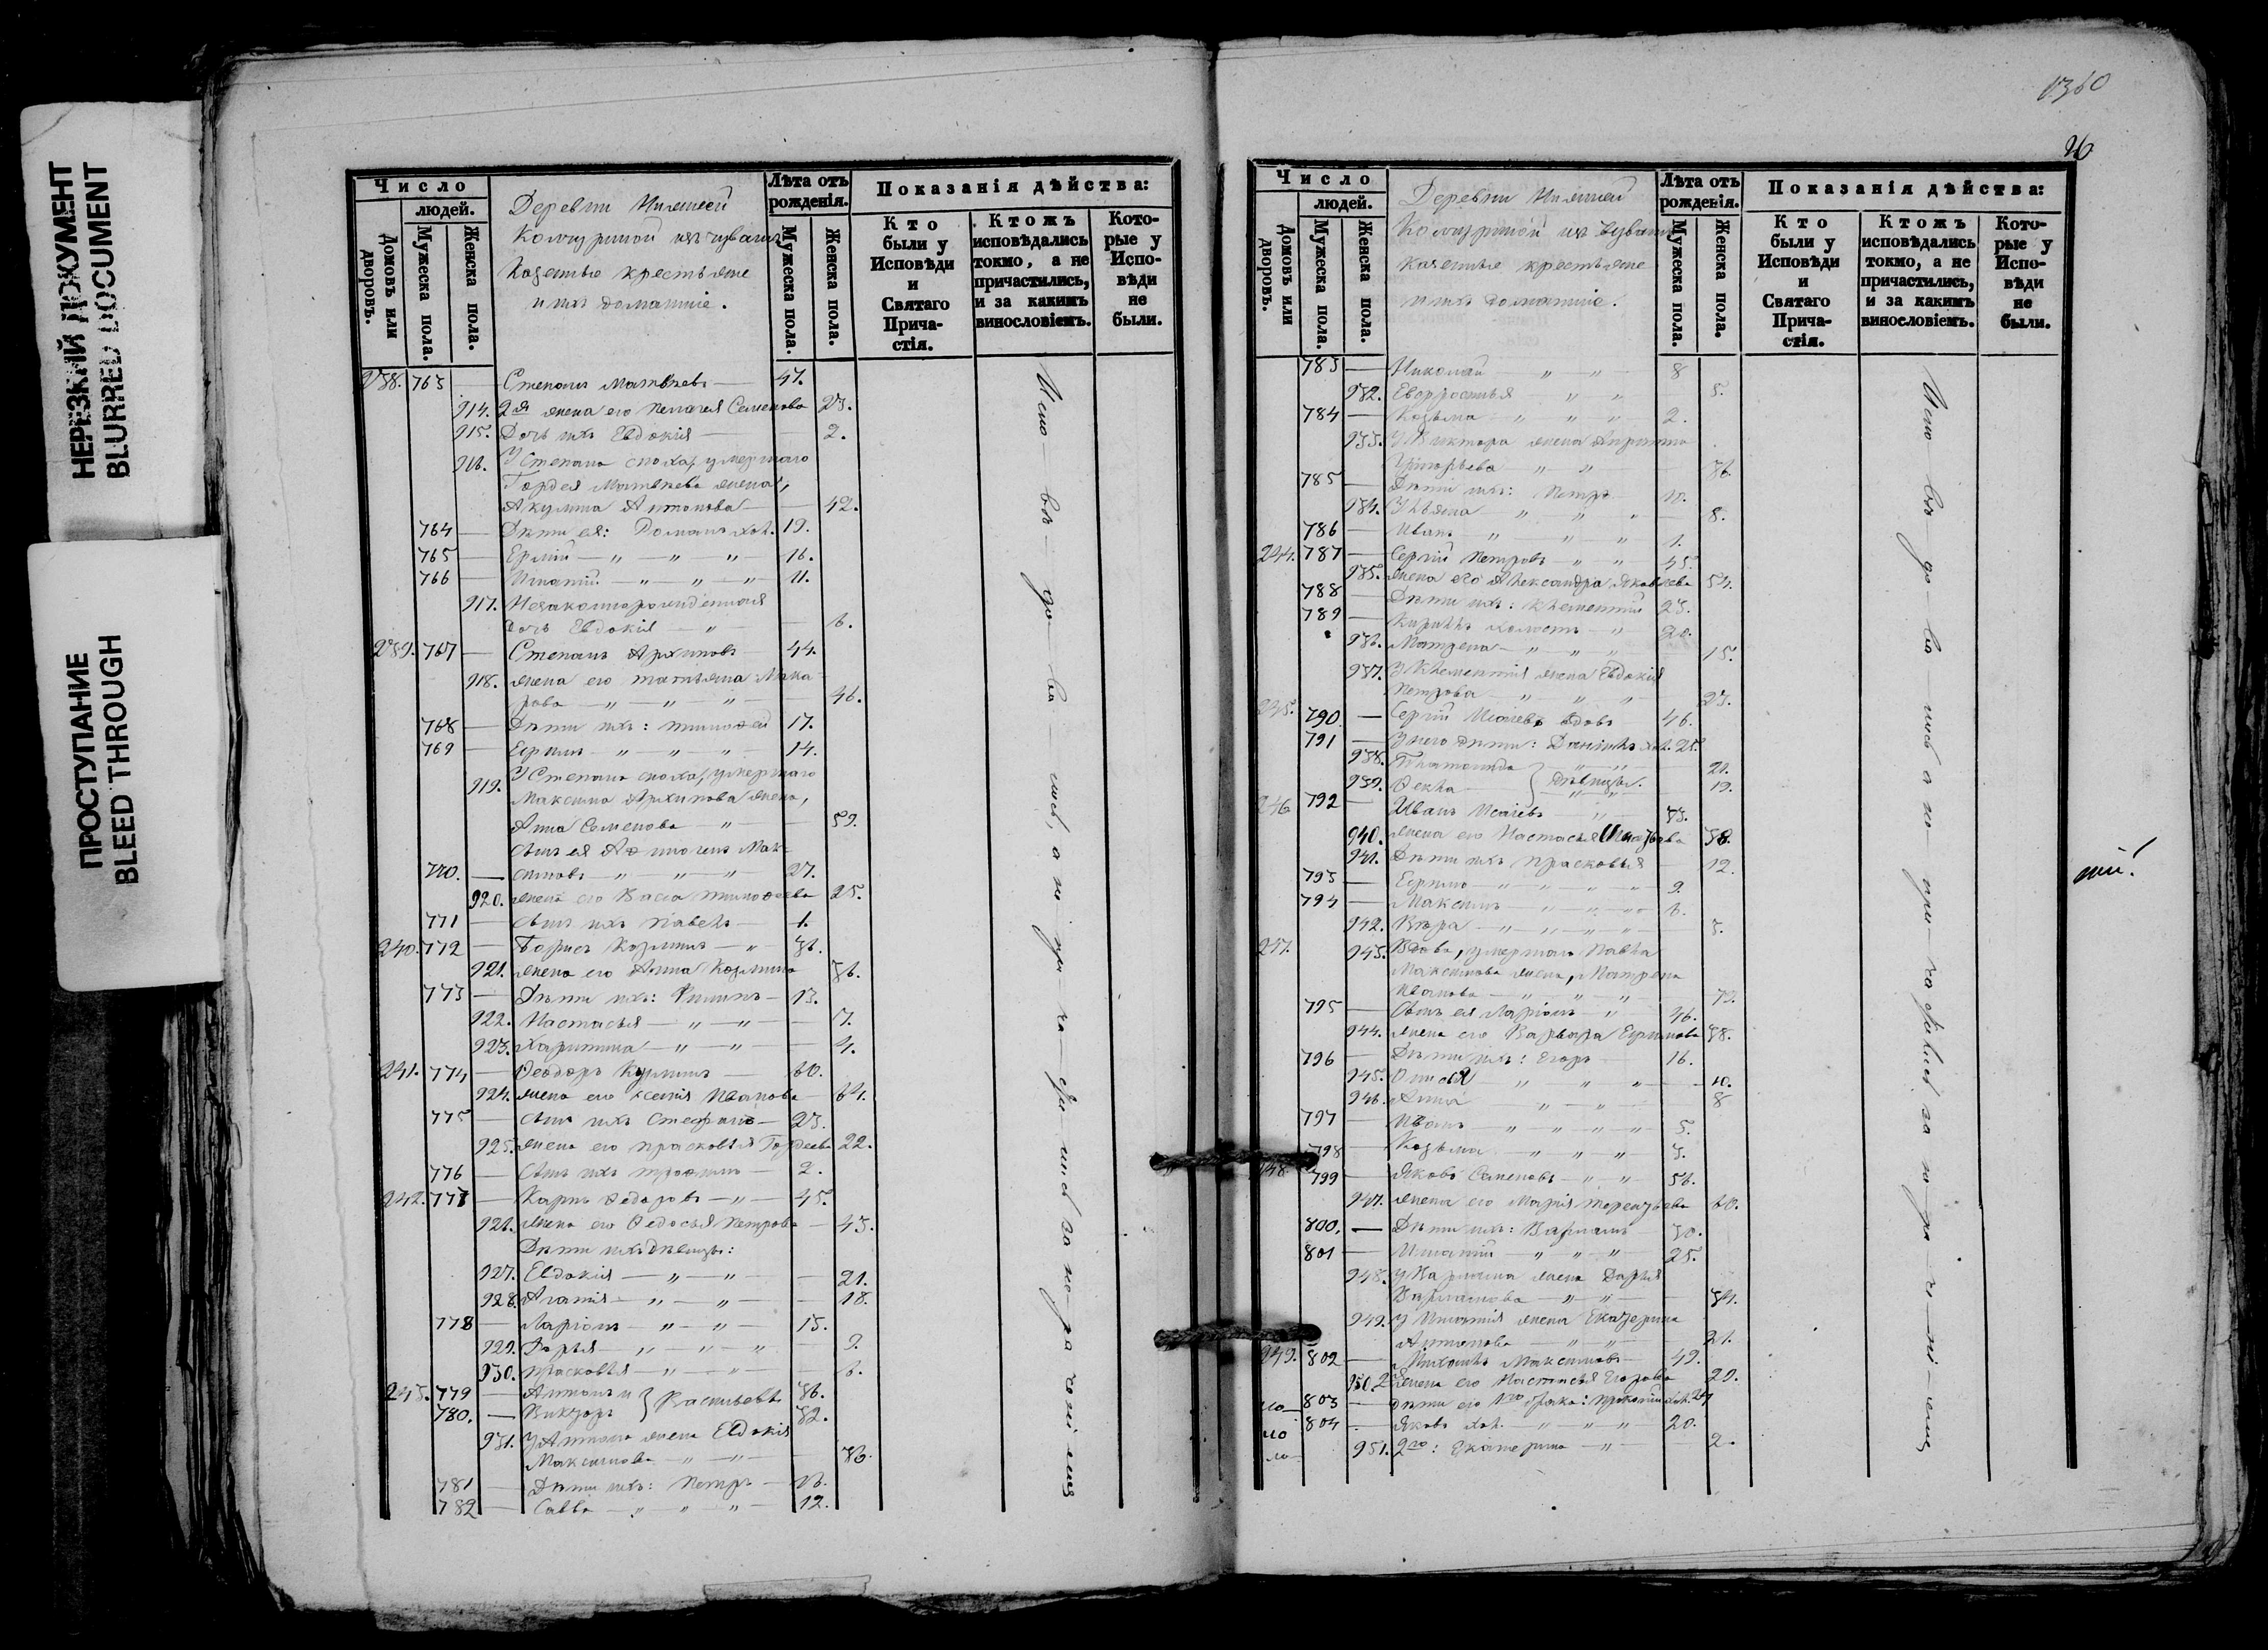 НЕРЕЗКИЙ ДОКУМЕНТ
BLURRED DOCUMENT
ПРОСТУПАНИЕ
BLEED THROUGH
Число
людей.
Домовъ или дворовъ.
Мужеска пола.
Женска пола.
Деревни Нижней
изъ чувашъ
Казенные крестьяне
и ихъ домашніе.
Лѣта отъ рожденія.
Мужеска пола.
Женска пола.
Показанія дѣйства:
Кто были у Исповѣди и Святаго Прича-стія.
Ктожъ исповѣдались токмо, а не причастились, и за какимъ винословіемъ.
Кото-рые у Испо-вѣди не были.
238. 763 — Степанъ Матвѣевъ — 47.
914. 2я жена его Пелагея Семенова 23.
915. Дочь ихъ Евдокія — 2.
916. У Степана сноха, умершаго
Гордея Матвѣева жена,
Акулина Антонова — 42.
764 — Дѣти ея: Романъ хол. 19.
765 — Ермій — „ — „ — „ 16.
766 — Игнатій — „ — „ — „ 11.
917. Незаконнорожденная
дочь Евдокія — „ — 6.
239. 767 — Степанъ Архиповъ 44.
918. жена его Татьяна Мака
рова — „ — „ — „ — 46.
768 — Дѣти ихъ: Тимофей 17.
769 — Ефимъ — „ — „ — „ 14.
919. У Степана сноха, умершаго
Максима Архипова жена,
Анна Семенова — „ — 59.
сынъ ея Афиногенъ Мак-
770. — симовъ — „ — „ — „ 27.
920. жена его Васса Тимофеева 25.
771 — сынъ ихъ Павелъ — 1.
240. 772 — Борисъ Козминъ — „ 36.
921. жена его Анна Козмина 36.
773 — Дѣти ихъ: Филипъ — 13.
922. Настасья — „ — „ — 7.
923. Харитина — „ — „ — 4.
241. 774 — Феодоръ Кузминъ — 60.
924. жена его Ксенія Иванова 64.
775 — сынъ ихъ Стефанъ — 23.
925. жена его Прасковья Гордеева 22.
776 — сынъ ихъ Трофимъ — 2.
242. 777 — Карпъ Федоровъ — „ — 45.
926. жена его Федосья Петрова — 43.
Дѣти ихъ дѣвицы:
927. Евдокія — „ — „ — 21.
928. Агафія — „ — „ — 18.
778 — Ларіонъ — „ — „ — 15.
929. Дарья — „ — „ — „ — 9.
930. Прасковья — „ — „ — 6.
243. 779 — Антонъ и } Васильевы 36.
780. — Викторъ 32.
931. У Антона жена Евдокія
Максимова — „ — „ — 36.
781 — Дѣти ихъ: Петръ — 16.
782 — Савва — „ — „ — „ — 12.
Исповѣдовались, а не причастились за нераченіемъ
1360
26
Число
людей.
Домовъ или дворовъ.
Мужеска пола.
Женска пола.
Деревни Нижней
изъ чувашъ
Казенные крестьяне
и ихъ домашніе.
Лѣта отъ рожденія.
Мужеска пола.
Женска пола.
Показанія дѣйства:
Кто были у Исповѣди и Святаго Прича-стія.
Ктожъ исповѣдались токмо, а не причастились, и за какимъ винословіемъ.
Кото-рые у Испо-вѣди не были.
783 — Николай — „ — „ — 8
932. Евфросинья „ „ — 5.
784 — Козьма — „ „ „ 2.
933. У Виктора жена Ирина
Григорьева — „ „ — 36.
785 — Дѣти ихъ: Петръ 10.
934. Ульяна — „ „ „ — 8.
786 — Иванъ „ „ „ 1.
244. 787 — Сергій Петровъ — „ „ 45.
935. жена его Александра Яковлева 54.
788 — Дѣти ихъ: Клементій 23.
789 — Кирилъ холостъ — „ 20.
936. Матрена — „ „ „ 15.
937. У Клементія жена Евдокія
Петрова — „ „ „ 23.
245. 790. — Сергій Исаевъ вдовъ 46.
791 — У него дѣти: Даніилъ хол. 25.
938. — „ „ — 21.
939. Фекла — } дѣвицы. 19.
246 792 — Иванъ Исаевъ 33.
940. жена его Настасья 38.
941. Дѣти ихъ Прасковья 12.
793 — Ефимъ — „ „ „ „ 9.
794 — Максимъ — „ „ „ 6.
942. Вѣра — „ „ „ „ 3.
247. 943. Вдова, умершаго Павла
Максимова жена, Матрена
Иванова — „ „ — 73.
795 — Сынъ ея Ларіонъ — „ 46.
944. жена его Варвара Ефимова 38.
796 — Дѣти ихъ: Егоръ — 16.
945. — „ „ „ — 10.
946. Анна „ „ 8
797 — Иванъ — „ „ „ „ 5.
798 — Козьма — „ „ „ 3.
248. 799 — Яковъ Семеновъ — „ „ 56.
947. жена его Марія Терентьева 60.
800. — Дѣти ихъ: Варламъ 30.
801 — Игнатій — „ „ „ 25.
948. У Варлама жена Дарья
Варламова — „ „ — 34.
949. У Игнатія жена Екатерина
Антонова — „ „ — 21.
249. 802 — Михаилъ Максимовъ 49.
950. 2 жена его Настасья Егорова 29.
803 — Дѣти его 1го брака: Прокопій хол. 24
804 — Яковъ хол. „ „ „ 20.
951. 2го: Екатерина — „ — 2.
Исповѣдовались а не причастились за нераченіемъ